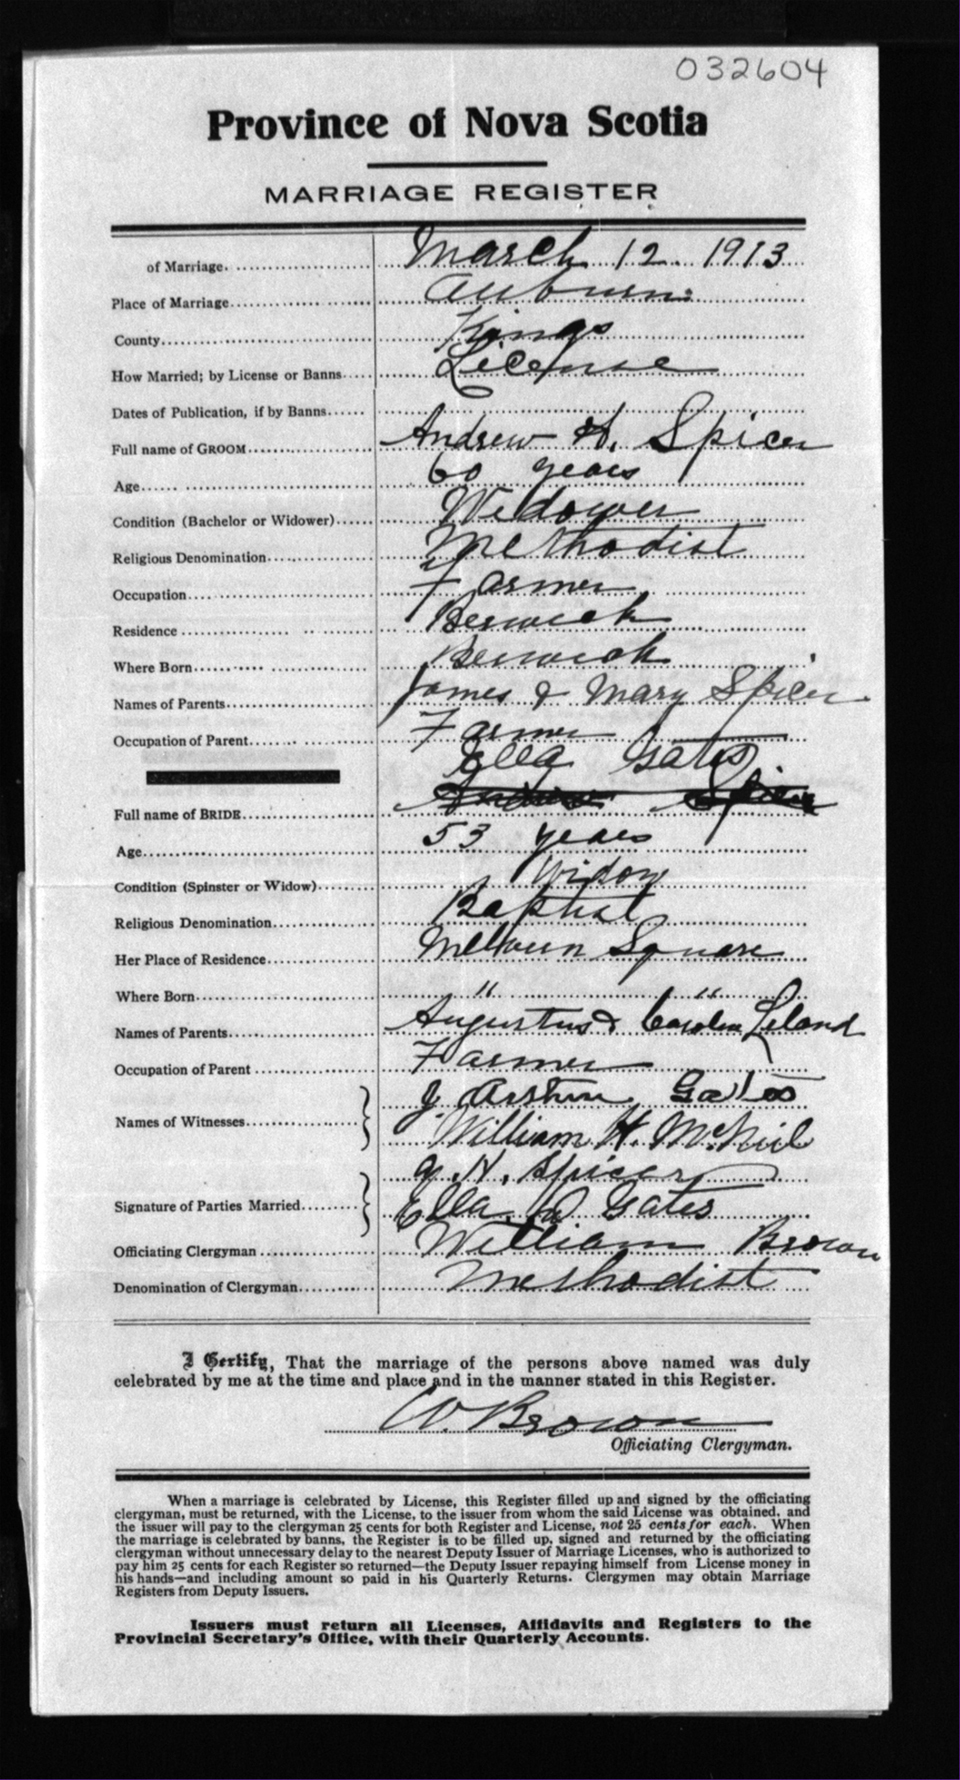 032604
Province of Nova Scotia
MARRIAGE REGISTER
of Marriage. March 12. 1913
Place of Marriage Auburn
County Kings
How Married; by License or Banns License
Dates of Publication, if by Banns
Full name of GROOM Andrew H. Spicer
Age 60 years
Condition (Bachelor or Widower) Widower
Religious Denomination Methodist
Occupation Farmer
Residence Berwick
Where Born Berwick
Names of Parents James & Mary Spicer
Occupation of Parent Farmer
Ella Gates
Full name of BRIDE Andrew Spicer
Age 53 years
Condition (Spinster or Widow) Widow
Religious Denomination Baptist
Her Place of Residence Melvern Square
Where Born " "
Names of Parents Augustus & Leland
Occupation of Parent Farmer
J Arthur Gates
Names of Witnesses William H. McNeil
A. H. Spicer
Signature of Parties Married Ella Gates
Officiating Clergyman William Brown
Denomination of Clergyman Methodist
I Certify, That the marriage of the persons above named was duly
celebrated by me at the time and place and in the manner stated in this Register.
W. Brown
Officiating Clergyman.
When a marriage is celebrated by License, this Register filled up and signed by the officiating
clergyman, must be returned, with the License, to the issuer from whom the said License was obtained, and
the issuer will pay to the clergyman 25 cents for both Register and License, not 25 cents for each. When
the marriage is celebrated by banns, the Register is to be filled up, signed and returned by the officiating
clergyman without unnecessary delay to the nearest Deputy Issuer of Marriage Licenses, who is authorized to
pay him 25 cents for each Register so returned—the Deputy Issuer repaying himself from License money in
his hands—and including amount so paid in his Quarterly Returns. Clergymen may obtain Marriage
Registers from Deputy Issuers.
Issuers must return all Licenses, Affidavits and Registers to the
Provincial Secretary's Office, with their Quarterly Accounts.